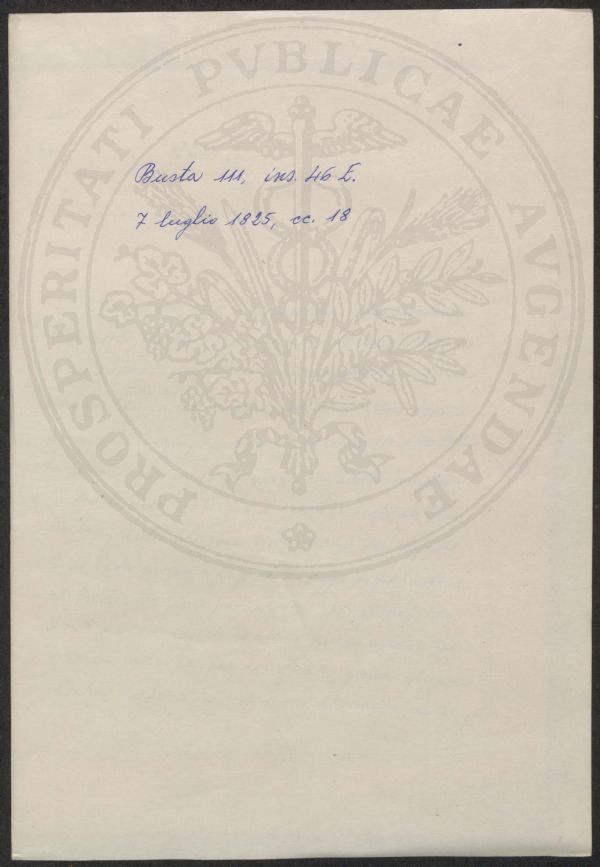 PROSPERITATI PVBLICAE AVGENDAE
Busta 111, ins. 46 E.
7 luglio 1825, cc. 18